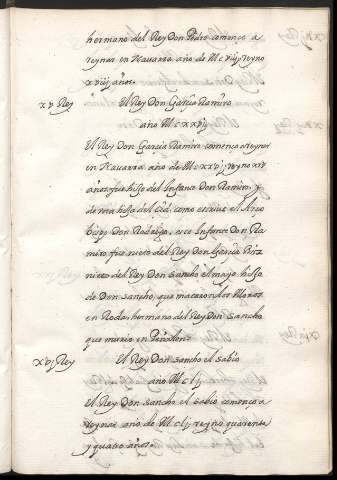 hermano del Rey Don Pedro començo a
reynar en Nauarra año de M c viij reyno
xviij años.
xv Rey El Rey Don Garcia Ramiro
año M c xxvij
El Rey Don Garcia Ramiro començo a reynar
en Nauarra año de M c xxvij reyno xvi
años fue hijo del Infante Don Ramiro, y
de una hija del Cid, como escriue el Arco
bispo Don Rodrigo, este Infante Don Ra
miro fue nieto del Rey Don Garcia
nieto del Rey Don sancho el mayor hijo
de Don sancho, que mataron los Moros
en Roda, hermano del Rey Don sancho
que murio en Peñalen.
xvj Rey El Rey Don sancho el sabio
año M c lj
El Rey Don sancho el sabio començo a
reynar año de M c lj reyno quarenta
y quatro años.